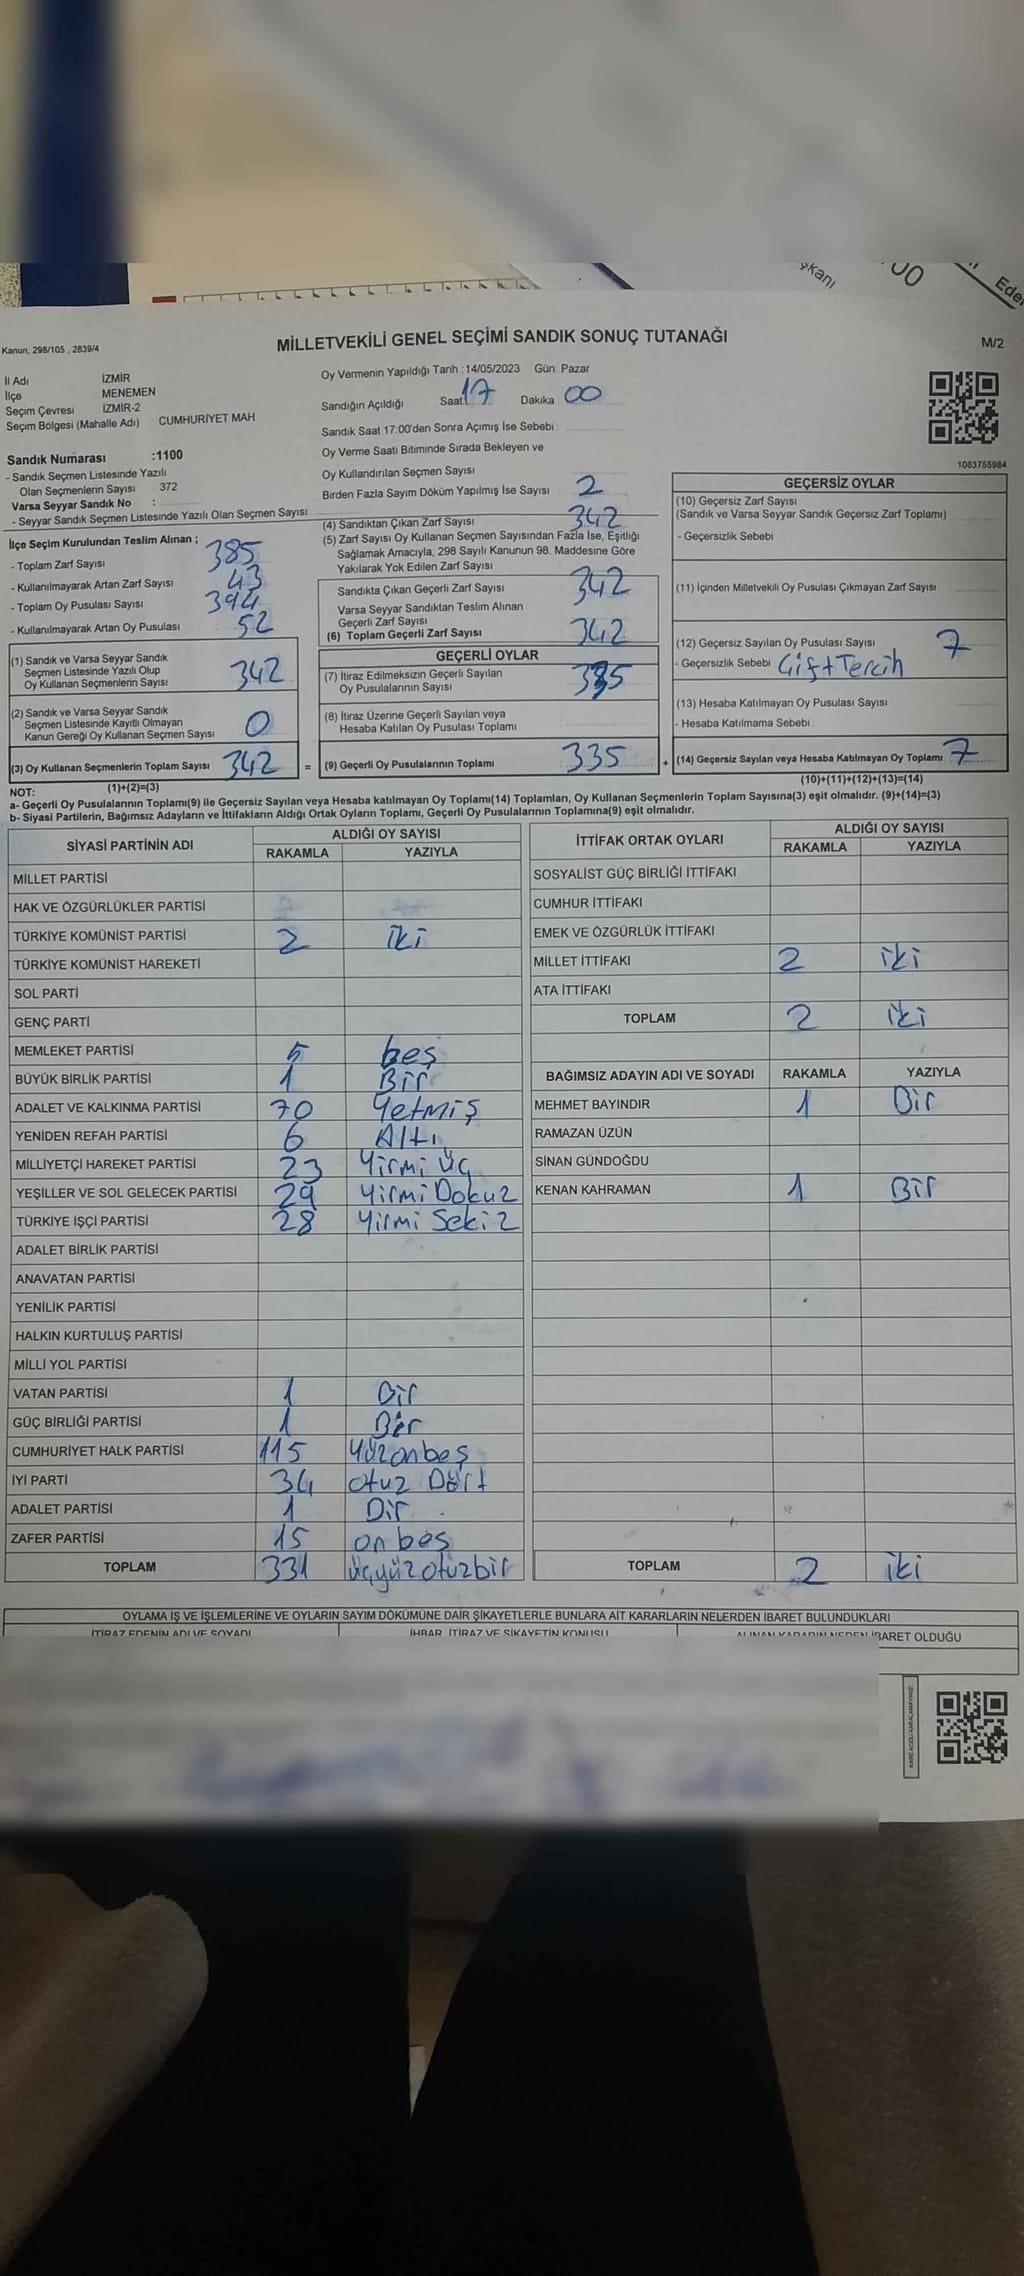 şkanı
00
Eder
Kanun, 298/105 , 2839/4
MİLLETVEKİLİ GENEL SEÇİMİ SANDIK SONUÇ TUTANAĞI
M/2
İl Adı İZMİR
İlçe MENEMEN
Seçim Çevresi İZMİR-2
Seçim Bölgesi (Mahalle Adı) CUMHURİYET MAH
Sandık Numarası :1100
- Sandık Seçmen Listesinde Yazılı
Olan Seçmenlerin Sayısı : 372
Varsa Seyyar Sandık No :
- Seyyar Sandık Seçmen Listesinde Yazılı Olan Seçmen Sayısı:
Oy Vermenin Yapıldığı Tarih :14/05/2023 Gün: Pazar
Sandığın Açıldığı Saat 17 Dakika 00
Sandık Saat 17:00'den Sonra Açımış İse Sebebi :
Oy Verme Saati Bitiminde Sırada Bekleyen ve
Oy Kullandırılan Seçmen Sayısı
Birden Fazla Sayım Döküm Yapılmış İse Sayısı 2
1083755984
İlçe Seçim Kurulundan Teslim Alınan ;
- Toplam Zarf Sayısı 385
- Kullanılmayarak Artan Zarf Sayısı 43
- Toplam Oy Pusulası Sayısı 394
- Kullanılmayarak Artan Oy Pusulası 52
(1) Sandık ve Varsa Seyyar Sandık
Seçmen Listesinde Yazılı Olup
Oy Kullanan Seçmenlerin Sayısı 342
(2) Sandık ve Varsa Seyyar Sandık
Seçmen Listesinde Kayıtlı Olmayan
Kanun Gereği Oy Kullanan Seçmen Sayısı 0
(3) Oy Kullanan Seçmenlerin Toplam Sayısı 342
(1)+(2)=(3)
(4) Sandıktan Çıkan Zarf Sayısı 342
(5) Zarf Sayısı Oy Kullanan Seçmen Sayısından Fazla İse, Eşitliği
Sağlamak Amacıyla, 298 Sayılı Kanunun 98. Maddesine Göre
Yakılarak Yok Edilen Zarf Sayısı
Sandıkta Çıkan Geçerli Zarf Sayısı 342
Varsa Seyyar Sandıktan Teslim Alınan
Geçerli Zarf Sayısı
(6) Toplam Geçerli Zarf Sayısı 342
GEÇERLİ OYLAR
(7) İtiraz Edilmeksizin Geçerli Sayılan
Oy Pusulalarının Sayısı 335
(8) İtiraz Üzerine Geçerli Sayılan veya
Hesaba Katılan Oy Pusulası Toplamı
= (9) Geçerli Oy Pusulalarının Toplamı 335
GEÇERSİZ OYLAR
(10) Geçersiz Zarf Sayısı
(Sandık ve Varsa Seyyar Sandık Geçersiz Zarf Toplamı)
- Geçersizlik Sebebi
(11) İçinden Milletvekili Oy Pusulası Çıkmayan Zarf Sayısı
(12) Geçersiz Sayılan Oy Pusulası Sayısı 7
- Geçersizlik Sebebi Çift Tercih
(13) Hesaba Katılmayan Oy Pusulası Sayısı
- Hesaba Katılmama Sebebi
+ (14) Geçersiz Sayılan veya Hesaba Katılmayan Oy Toplamı 7
(10)+(11)+(12)+(13)=(14)
NOT:
a- Geçerli Oy Pusulalarının Toplamı(9) ile Geçersiz Sayılan veya Hesaba katılmayan Oy Toplamı(14) Toplamları, Oy Kullanan Seçmenlerin Toplam Sayısına(3) eşit olmalıdır. (9)+(14)=(3)
b- Siyasi Partilerin, Bağımsız Adayların ve İttifakların Aldığı Ortak Oyların Toplamı, Geçerli Oy Pusulalarının Toplamına(9) eşit olmalıdır.
SİYASİ PARTİNİN ADI ALDIĞI OY SAYISI
RAKAMLA YAZIYLA
MİLLET PARTİSİ
HAK VE ÖZGÜRLÜKLER PARTİSİ
TÜRKİYE KOMÜNİST PARTİSİ 2 iki
TÜRKİYE KOMÜNİST HAREKETİ
SOL PARTİ
GENÇ PARTİ
MEMLEKET PARTİSİ 5 beş
BÜYÜK BİRLİK PARTİSİ 1 Bir
ADALET VE KALKINMA PARTİSİ 70 Yetmiş
YENİDEN REFAH PARTİSİ 6 Altı
MİLLİYETÇİ HAREKET PARTİSİ 23 Yirmi üç
YEŞİLLER VE SOL GELECEK PARTİSİ 29 Yirmi Dokuz
TÜRKİYE İŞÇİ PARTİSİ 28 Yirmi Sekiz
ADALET BİRLİK PARTİSİ
ANAVATAN PARTİSİ
YENİLİK PARTİSİ
HALKIN KURTULUŞ PARTİSİ
MİLLİ YOL PARTİSİ
VATAN PARTİSİ 1 Bir
GÜÇ BİRLİĞİ PARTİSİ 1 Bir
CUMHURİYET HALK PARTİSİ 115 Yüzonbeş
İYİ PARTİ 34 otuz Dört
ADALET PARTİSİ 1 Bir
ZAFER PARTİSİ 15 on beş
TOPLAM 331 üçyüzotuzbir
İTTİFAK ORTAK OYLARI ALDIĞI OY SAYISI
RAKAMLA YAZIYLA
SOSYALİST GÜÇ BİRLİĞİ İTTİFAKI
CUMHUR İTTİFAKI
EMEK VE ÖZGÜRLÜK İTTİFAKI
MİLLET İTTİFAKI 2 iki
ATA İTTİFAKI
TOPLAM 2 iki
BAĞIMSIZ ADAYIN ADI VE SOYADI RAKAMLA YAZIYLA
MEHMET BAYINDIR 1 Bir
RAMAZAN ÜZÜN
SİNAN GÜNDOĞDU
KENAN KAHRAMAN 1 Bir
TOPLAM 2 iki
OYLAMA İŞ VE İŞLEMLERİNE VE OYLARIN SAYIM DÖKÜMÜNE DAİR ŞİKAYETLERLE BUNLARA AİT KARARLARIN NELERDEN İBARET BULUNDUKLARI
İTİRAZ EDENİN ADI VE SOYADI İHBAR, İTİRAZ VE ŞİKAYETİN KONUSU ALINAN KARARIN NEDEN İBARET OLDUĞU